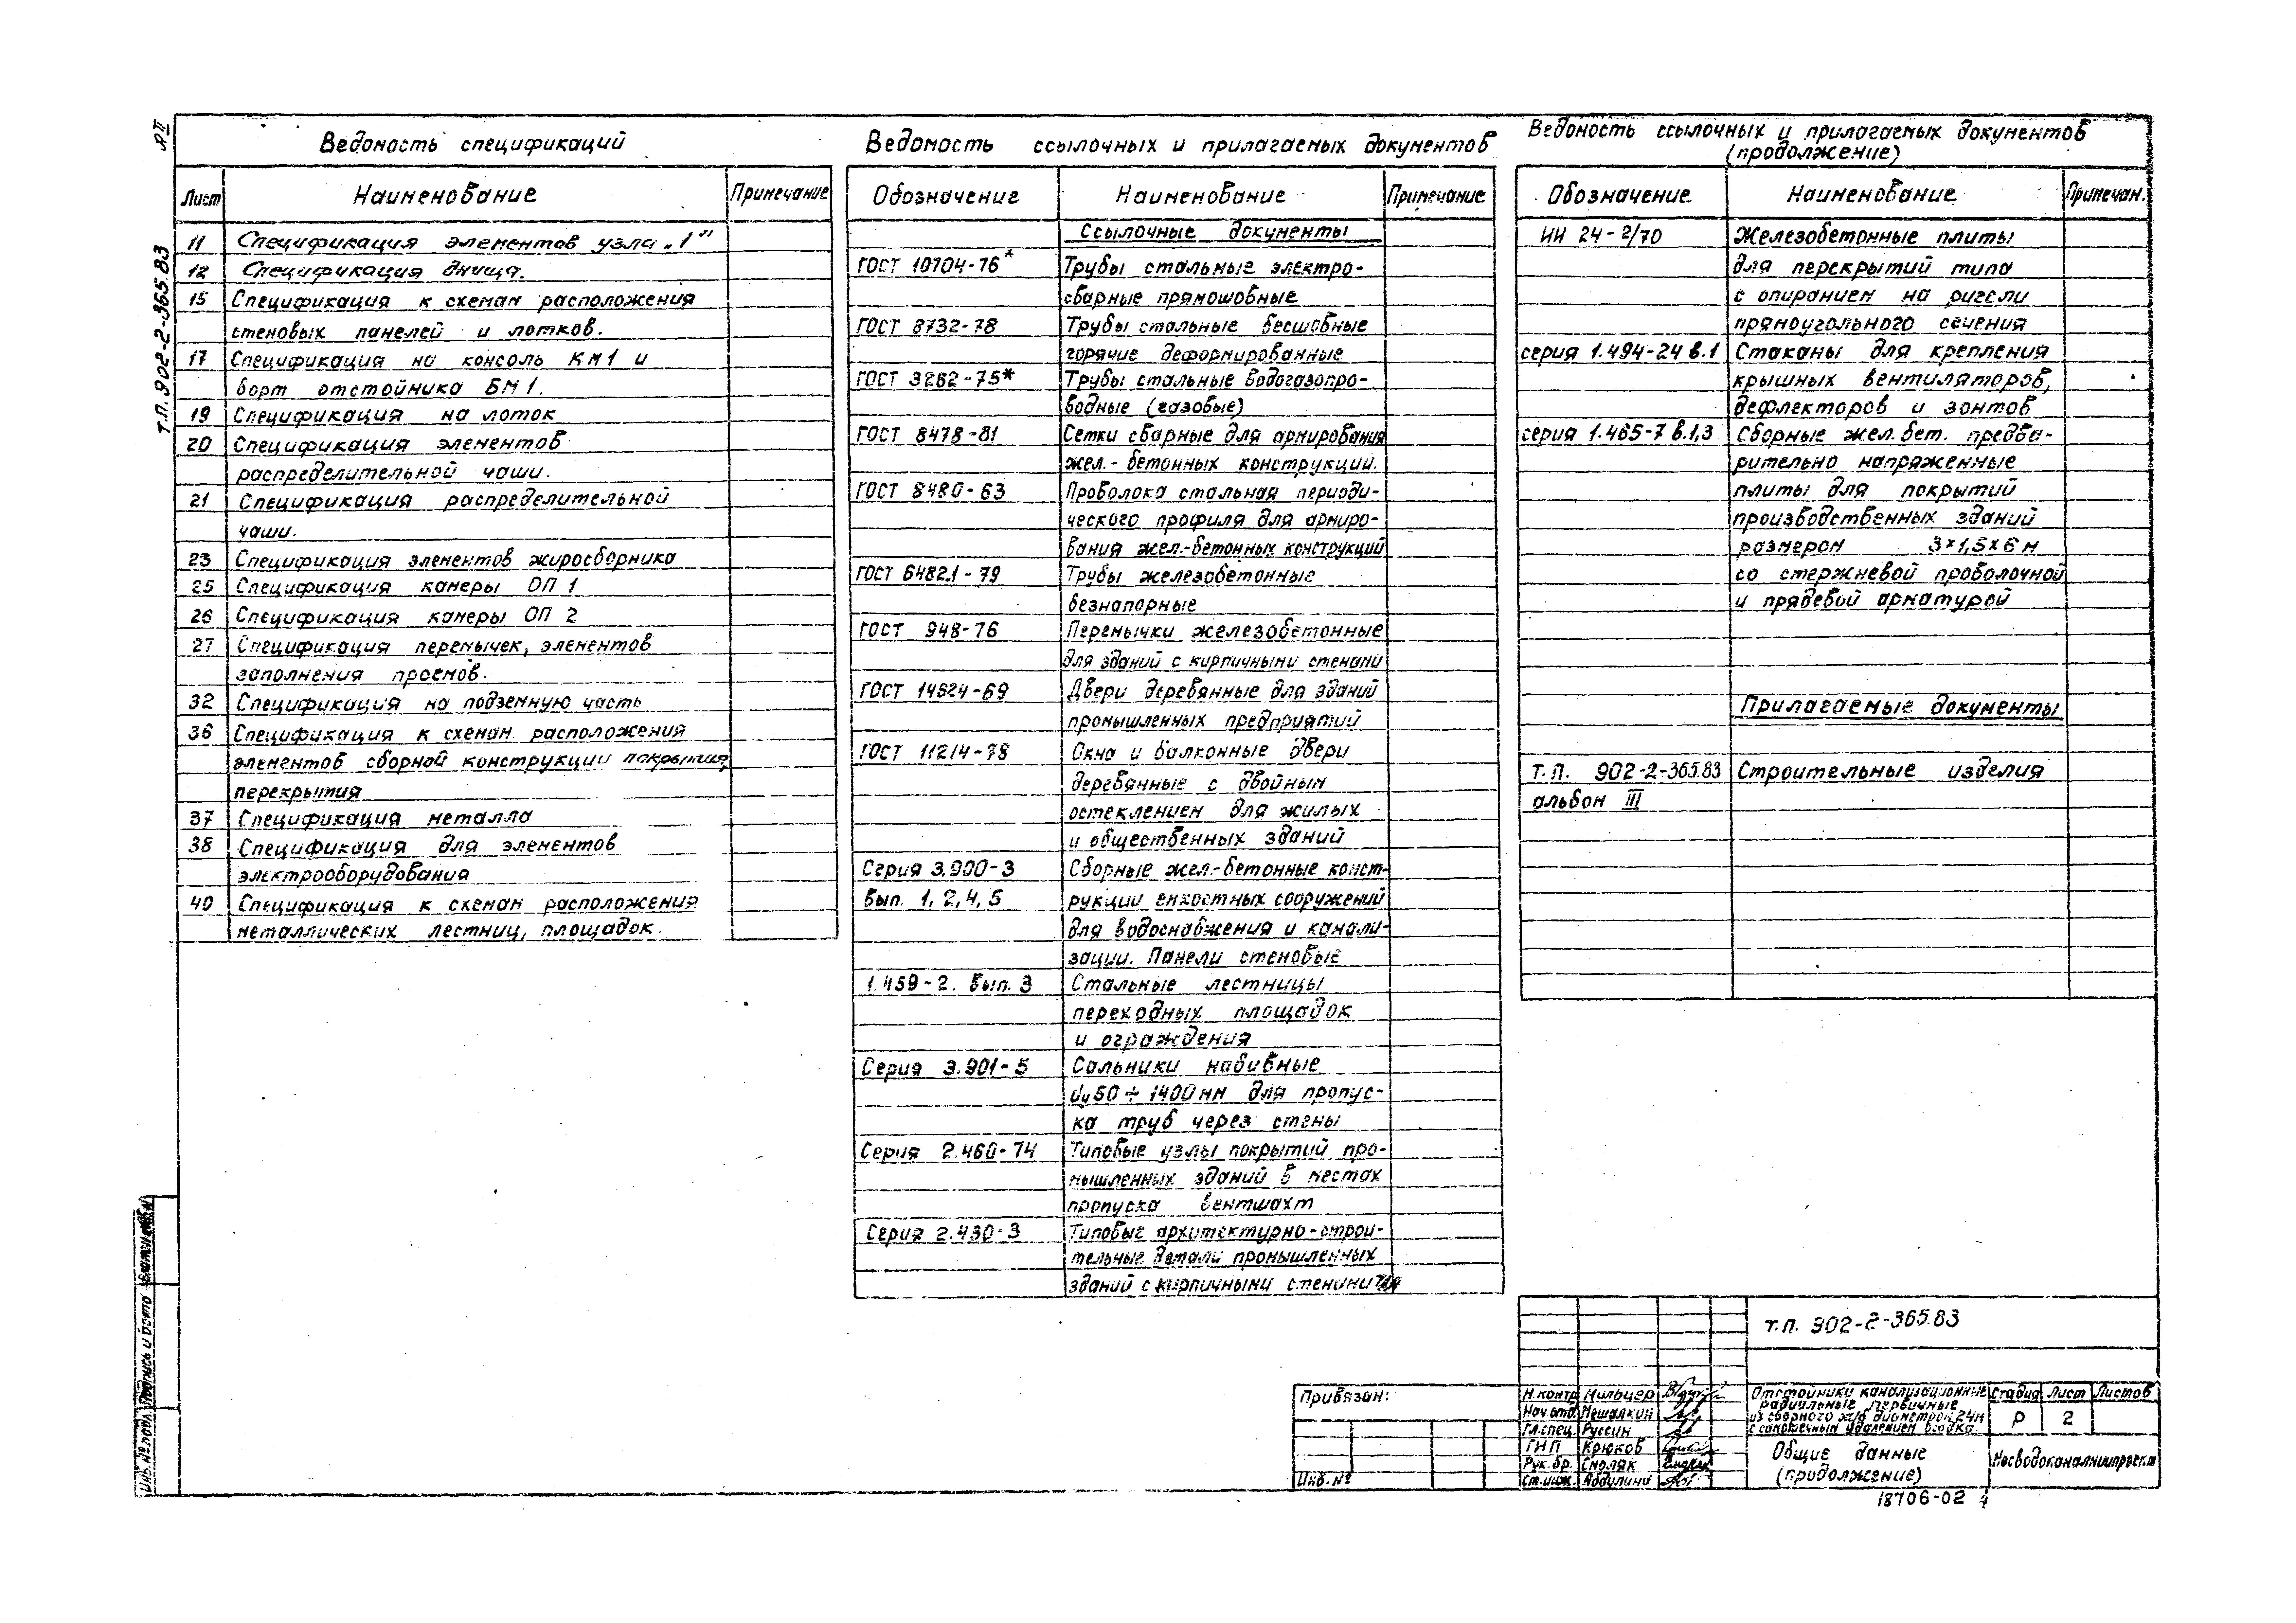 Ведомость спецификаций
Лист Наименование Примечание
11 Спецификация элементов узла „1"
12 Спецификация днища.
15 Спецификация к схемам расположения
стеновых панелей и лотков.
17 Спецификация на консоль КМ1 и
борт отстойника БМ1.
19 Спецификация на лоток
20 Спецификация элементов
распределительной чаши.
21 Спецификация распределительной
чаши.
23 Спецификация элементов жиросборника
25 Спецификация камеры ОП 1
26 Спецификация камеры ОП 2
27 Спецификация перемычек, элементов
заполнения проемов.
32 Спецификация на подземную часть
36 Спецификация к схемам расположения
элементов сборной конструкции покрытия,
перекрытия
37 Спецификация металла
38 Спецификация для элементов
электрооборудования
40 Спецификация к схемам расположения
металлических лестниц, площадок.
Ведомость ссылочных и прилагаемых документов
Обозначение Наименование Примечание
Ссылочные документы
ГОСТ 10704-76* Трубы стальные электро-
сварные прямошовные
ГОСТ 8732-78 Трубы стальные бесшовные
горячие деформированные
ГОСТ 3262-75* Трубы стальные водогазопро-
водные (газовые)
ГОСТ 8478-81 Сетки сварные для армирования
жел.- бетонных конструкций.
ГОСТ 8480-63 Проволока стальная периоди-
ческого профиля для армиро-
вания жел.-бетонных конструкций
ГОСТ 6482.1-79 Трубы железобетонные
безнапорные
ГОСТ 948-76 Перемычки железобетонные
для зданий с кирпичными стенами
ГОСТ 14624-69 Двери деревянные для зданий
промышленных предприятий
ГОСТ 11214-78 Окна и балконные двери
деревянные с двойным
остеклением для жилых
и общественных зданий
Серия 3.900-3 Сборные жел.-бетонные конст-
Вып. 1, 2, 4, 5 рукции емкостных сооружений
для водоснабжения и канали-
зации. Панели стеновые
1.459-2. Вып. 3 Стальные лестницы
переходных площадок
и ограждения
Серия 3.901-5 Сальники набивные
dу50÷1400мм для пропус-
ка труб через стены
Серия 2.460-74 Типовые узлы покрытий про-
мышленных зданий в местах
пропуска вентшахт
Серия 2.430-3 Типовые архитектурно-строи-
тельные детали промышленных
зданий с кирпичными стенами
Ведомость ссылочных и прилагаемых документов
(продолжение)
Обозначение Наименование Примечан.
ИИ 24-2/70 Железобетонные плиты
для перекрытий типа
с опиранием на ригели
прямоугольного сечения
серия 1.494-24 в.1 Стаканы для крепления
крышных вентиляторов,
дефлекторов и зонтов
серия 1.465-7 в.1,3 Сборные жел.бет. предва-
рительно напряженные
плиты для покрытий
производственных зданий
размером 3×1,5×6 м
со стержневой проволочной
и прядевой арматурой
Прилагаемые документы
т.п. 902-2-365.83 Строительные изделия
альбом III
АII
Т.П. 902-2-365.83
Инв. № подл. Подпись и дата
Привязан:
Инв. №
т.п. 902-2-365.83
Н.контр Мильцер
Нач отд Мешалкин
Гл.спец. Руссин
ГИП Крюков
Рук. бр. Смоляк
Ст.инж. Абдулина
Отстойники канализационные
радиальные первичные
из сборного ж/б диаметром 24м
с самотечным удалением осадка.
Стадия Лист Листов
Р 2
Общие данные
(продолжение)
Мосводоканалниипроект
18706-02 4